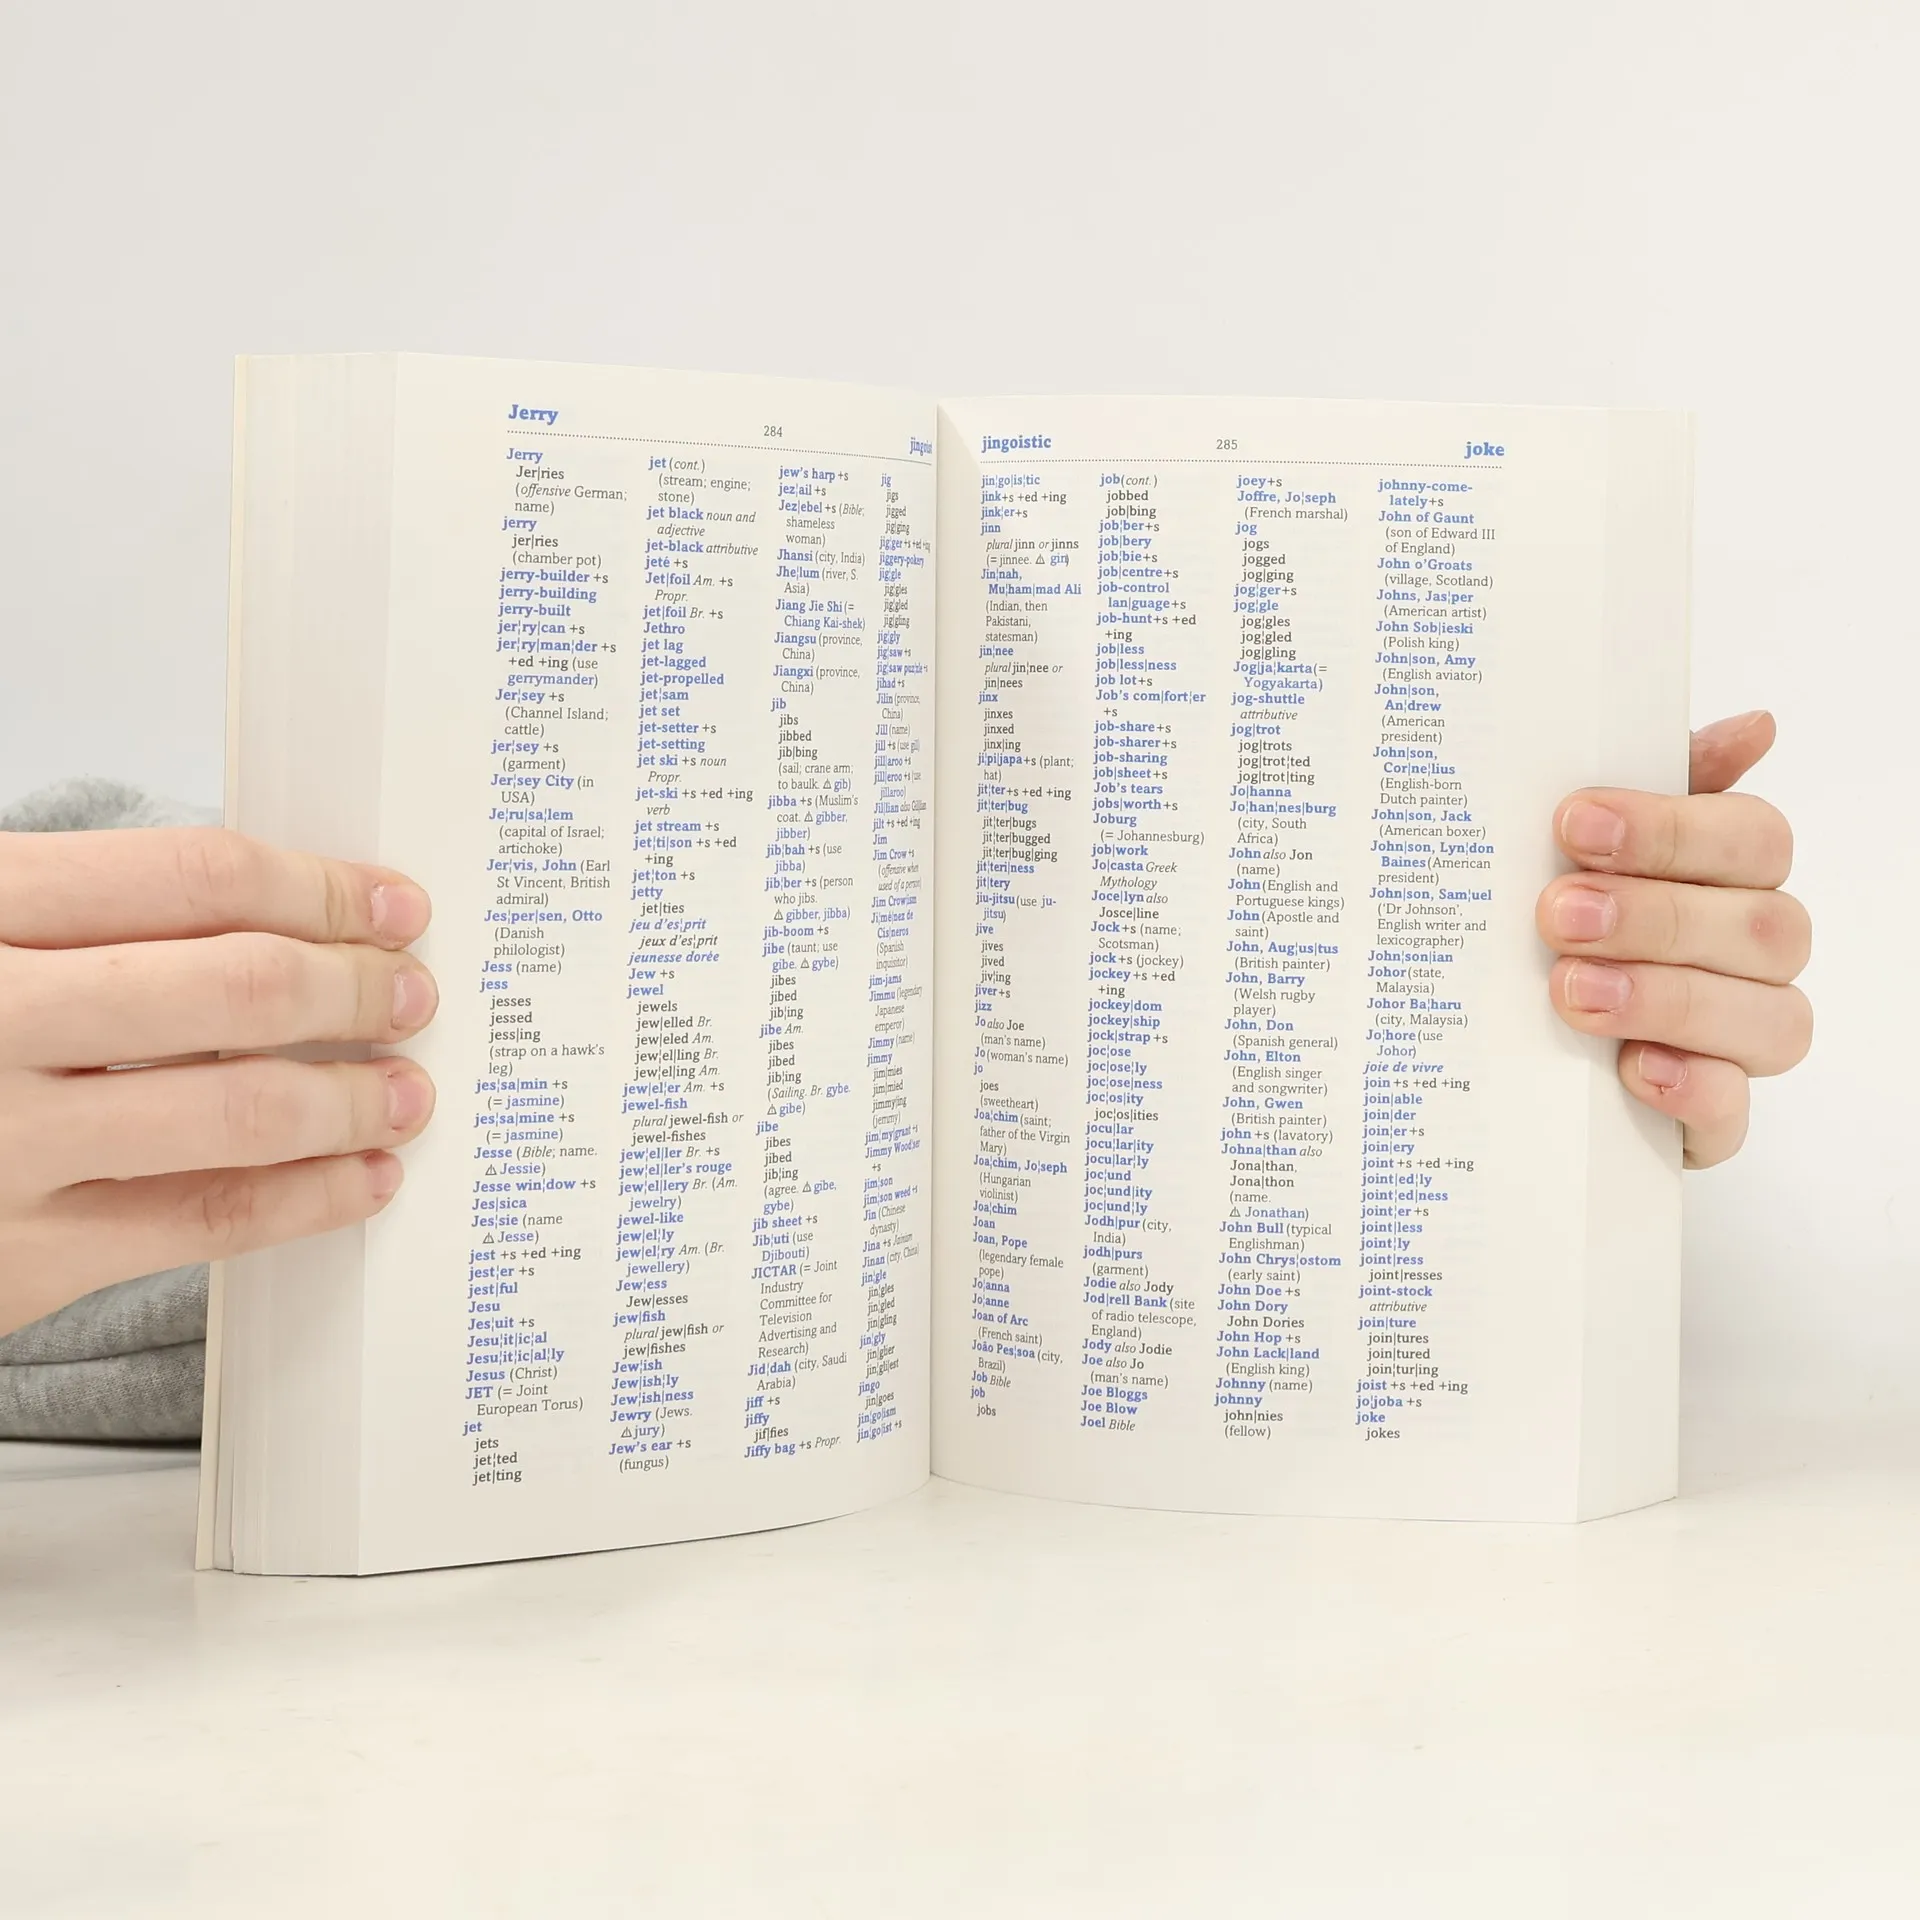 Jerry
284
jingoist
Jerry
Jer|ries
(offensive German;
name)
jerry
jer|ries
(chamber pot)
jerry-builder +s
jerry-building
jerry-built
jer¦ry|can +s
jer¦ry|man¦der +s
+ed +ing (use
gerrymander)
Jer¦sey +s
(Channel Island;
cattle)
jer¦sey +s
(garment)
Jer¦sey City (in
USA)
Je¦ru|sa¦lem
(capital of Israel;
artichoke)
Jer¦vis, John (Earl
St Vincent, British
admiral)
Jes¦per|sen, Otto
(Danish
philologist)
Jess (name)
jess
jesses
jessed
jess|ing
(strap on a hawk's
leg)
jes¦sa|min +s
(= jasmine)
jes¦sa|mine +s
(= jasmine)
Jesse (Bible; name.
⚠ Jessie)
Jesse win¦dow +s
Jes|sica
Jes¦sie (name
⚠ Jesse)
jest +s +ed +ing
jest¦er +s
jest|ful
Jesu
Jes¦uit +s
Jesu¦it¦ic¦al
Jesu¦it¦ic|al¦ly
Jesus (Christ)
JET (= Joint
European Torus)
jet
jets
jet¦ted
jet|ting
jet (cont.)
(stream; engine;
stone)
jet black noun and
adjective
jet-black attributive
jeté +s
Jet|foil Am. +s
Propr.
jet|foil Br. +s
Jethro
jet lag
jet-lagged
jet-propelled
jet¦sam
jet set
jet-setter +s
jet-setting
jet ski +s noun
Propr.
jet-ski +s +ed +ing
verb
jet stream +s
jet¦ti|son +s +ed
+ing
jet¦ton +s
jetty
jet|ties
jeu d'es¦prit
jeux d'es¦prit
jeunesse dorée
Jew +s
jewel
jewels
jew|elled Br.
jew|eled Am.
jew¦el|ling Br.
jew¦el|ing Am.
jew|el¦er Am. +s
jewel-fish
plural jewel-fish or
jewel-fishes
jew¦el|ler Br. +s
jew¦el|ler's rouge
jew¦el|lery Br. (Am.
jewelry)
jewel-like
jew|el¦ly
jew|el¦ry Am. (Br.
jewellery)
Jew¦ess
Jew|esses
jew|fish
plural jew|fish or
jew|fishes
Jew¦ish
Jew|ish¦ly
Jew|ish¦ness
Jewry (Jews.
⚠ jury)
Jew's ear +s
(fungus)
jew's harp +s
jez¦ail +s
Jez|ebel +s (Bible;
shameless
woman)
Jhansi (city, India)
Jhe¦lum (river, S.
Asia)
Jiang Jie Shi (=
Chiang Kai-shek)
Jiangsu (province,
China)
Jiangxi (province,
China)
jib
jibs
jibbed
jib|bing
(sail; crane arm;
to baulk. ⚠ gib)
jibba +s (Muslim's
coat. ⚠ gibber,
jibber)
jib|bah +s (use
jibba)
jib¦ber +s (person
who jibs.
⚠ gibber, jibba)
jib-boom +s
jibe (taunt; use
gibe. ⚠ gybe)
jibes
jibed
jib¦ing
jibe Am.
jibes
jibed
jib¦ing
(Sailing. Br. gybe.
⚠ gibe)
jibe
jibes
jibed
jib¦ing
(agree. ⚠ gibe,
gybe)
jib sheet +s
Jib¦uti (use
Djibouti)
JICTAR (= Joint
Industry
Committee for
Television
Advertising and
Research)
Jid¦dah (city, Saudi
Arabia)
jiff +s
jiffy
jif|fies
Jiffy bag +s Propr.
jig
jigs
jigged
jig¦ging
jig¦ger +s +ed +ing
jiggery-pokery
jig¦gle
jig¦gles
jig¦gled
jig¦gling
jig¦gly
jig¦saw +s
jig¦saw puzzle +s
jihad +s
Jilin (province,
China)
Jill (name)
jill +s (use gill)
jill|aroo +s
jill|eroo +s (use
jillaroo)
Jil¦lian also Gillian
jilt +s +ed +ing
Jim
Jim Crow +s
(offensive when
used of a person)
Jim Crow¦ism
Ji¦mé¦nez de
Cis|neros
(Spanish
inquisitor)
jim-jams
Jimmu (legendary
Japanese
emperor)
Jimmy (name)
jimmy
jim|mies
jim|mied
jimmy|ing
(jemmy)
jim¦my|grant +s
Jimmy Wood¦ser
+s
jim¦son
jim¦son weed +s
Jin (Chinese
dynasty)
Jina +s Jainism
Jinan (city, China)
jin¦gle
jin¦gles
jin¦gled
jin¦gling
jin¦gly
jin|glier
jin|gli|est
jingo
jin|goes
jin¦go|ism
jin¦go|ist +s
jingoistic
285
joke
jin¦go|is¦tic
jink+s +ed +ing
jink¦er+s
jinn
plural jinn or jinns
(= jinnee. ⚠ gin)
Jin¦nah,
Mu¦ham|mad Ali
(Indian, then
Pakistani,
statesman)
jin¦nee
plural jin¦nee or
jin|nees
jinx
jinxes
jinxed
jinx|ing
ji¦pi|japa+s (plant;
hat)
jit¦ter+s +ed +ing
jit¦ter|bug
jit¦ter|bugs
jit¦ter|bugged
jit¦ter|bug|ging
jit¦teri|ness
jit|tery
jiu-jitsu (use ju-
jitsu)
jive
jives
jived
jiv¦ing
jiver+s
jizz
Jo also Joe
(man's name)
Jo (woman's name)
jo
joes
(sweetheart)
Joa¦chim (saint;
father of the Virgin
Mary)
Joa¦chim, Jo¦seph
(Hungarian
violinist)
Joa¦chim
Joan
Joan, Pope
(legendary female
pope)
Jo¦anna
Jo¦anne
Joan of Arc
(French saint)
João Pes¦soa (city,
Brazil)
Job Bible
job
jobs
job (cont.)
jobbed
job|bing
job¦ber+s
job|bery
job¦bie+s
job|centre+s
job-control
lan|guage+s
job-hunt+s +ed
+ing
job|less
job|less|ness
job lot+s
Job's com|fort¦er
+s
job-share+s
job-sharer+s
job-sharing
job|sheet+s
Job's tears
jobs|worth+s
Joburg
(= Johannesburg)
job|work
Jo|casta Greek
Mythology
Joce|lyn also
Josce|line
Jock+s (name;
Scotsman)
jock+s (jockey)
jockey+s +ed
+ing
jockey|dom
jockey|ship
jock|strap +s
joc¦ose
joc¦ose¦ly
joc¦ose|ness
joc¦os¦ity
joc¦os|ities
jocu¦lar
jocu¦lar|ity
jocu¦lar¦ly
joc¦und
joc¦und¦ity
joc¦und¦ly
Jodh|pur (city,
India)
jodh|purs
(garment)
Jodie also Jody
Jod|rell Bank (site
of radio telescope,
England)
Jody also Jodie
Joe also Jo
(man's name)
Joe Bloggs
Joe Blow
Joel Bible
joey+s
Joffre, Jo¦seph
(French marshal)
jog
jogs
jogged
jog|ging
jog¦ger+s
jog¦gle
jog¦gles
jog¦gled
jog¦gling
Jog|ja¦karta (=
Yogyakarta)
jog-shuttle
attributive
jog|trot
jog|trots
jog|trot¦ted
jog|trot|ting
Jo|hanna
Jo¦han¦nes|burg
(city, South
Africa)
John also Jon
(name)
John (English and
Portuguese kings)
John (Apostle and
saint)
John, Aug¦us¦tus
(British painter)
John, Barry
(Welsh rugby
player)
John, Don
(Spanish general)
John, Elton
(English singer
and songwriter)
John, Gwen
(British painter)
john +s (lavatory)
Johna¦than also
Jona|than,
Jona|thon
(name.
⚠ Jonathan)
John Bull (typical
Englishman)
John Chrys¦ostom
(early saint)
John Doe +s
John Dory
John Dories
John Hop +s
John Lack|land
(English king)
Johnny (name)
johnny
john|nies
(fellow)
johnny-come-
lately+s
John of Gaunt
(son of Edward III
of England)
John o'Groats
(village, Scotland)
Johns, Jas¦per
(American artist)
John Sob|ieski
(Polish king)
John|son, Amy
(English aviator)
John|son,
An¦drew
(American
president)
John|son,
Cor|ne¦lius
(English-born
Dutch painter)
John|son, Jack
(American boxer)
John|son, Lyn¦don
Baines (American
president)
John|son, Sam¦uel
('Dr Johnson',
English writer and
lexicographer)
John¦son|ian
Johor (state,
Malaysia)
Johor Ba¦haru
(city, Malaysia)
Jo¦hore (use
Johor)
joie de vivre
join +s +ed +ing
join|able
join|der
join¦er+s
join¦ery
joint +s +ed +ing
joint|ed¦ly
joint¦ed|ness
joint¦er +s
joint|less
joint¦ly
joint|ress
joint|resses
joint-stock
attributive
join|ture
join|tures
join|tured
join¦tur|ing
joist +s +ed +ing
jo¦joba +s
joke
jokes